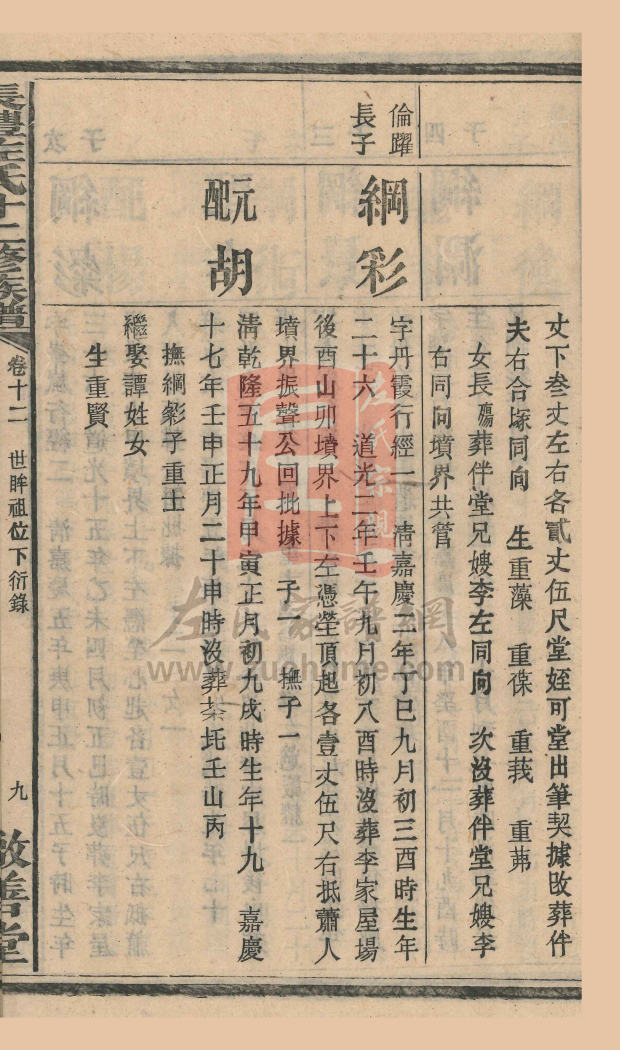 丈下叁丈左右各貳丈伍尺堂姪可堂出筆契據改葬伴
夫右合塚同向 生重藻 重葆 重莪 重茀
女長殤葬伴堂兄嫂李左同向 次沒葬伴堂兄嫂李
右同向墳界共管
倫躍
長子
綱彩
字丹霞行經一 清嘉慶二年丁巳九月初三酉時生年
二十六 道光二年壬午九月初八酉時沒葬李家屋場
後酉山卯墳界上下左憑塋頂起各壹丈伍尺右抵蕭人
墳界振聲公回批據 子一 撫子一
元配
胡
清乾隆五十九年甲寅正月初九戌時生年十九 嘉慶
十七年壬申正月二十申時沒葬茶坨壬山丙
撫綱彰子重士
繼娶譚姓女
生重賢
長澧左氏十二修族譜
卷十二 世眸祖位下衍錄
九
敦善堂
左氏宗親
左氏家譜網
www.zuohome.com